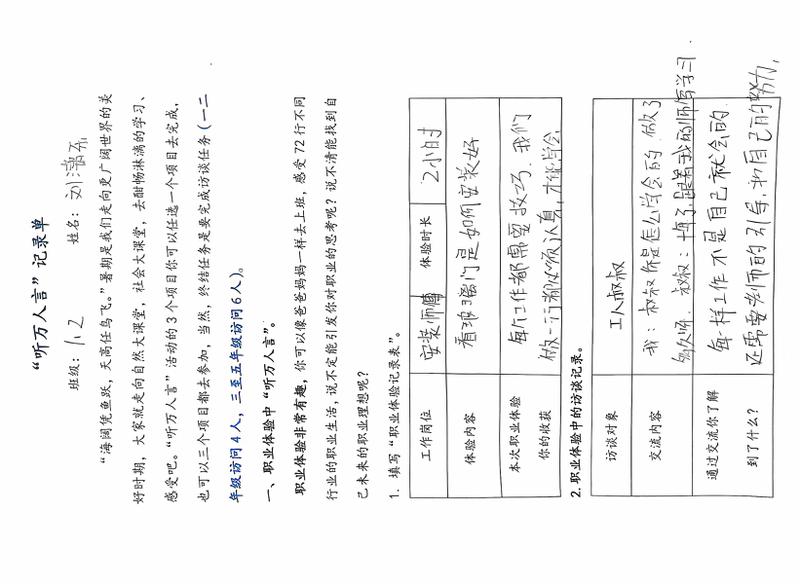 “听万人言”记录单
班级： 1、2 姓名：刘
“海阔凭鱼跃，天高任鸟飞。”暑期是我们走向更广阔世界的美
好时期，大家就走向自然大课堂，社会大课堂，去酣畅淋漓的学习、
感受吧。“听万人言”活动的3个项目你可以任选一个项目去完成，
也可以三个项目都去参加，当然，终结任务是要完成访谈任务（一二
年级访问4人，三至五年级访问6人）。
一、职业体验中“听万人言”。
职业体验非常有趣，你可以像爸爸妈妈一样去上班，感受72行不同
行业的职业生活，说不定能引发你对职业的思考呢？说不清能找到自
己未来的职业理想呢？
1. 填写“职业体验记录表”。
工作岗位 安装师傅 体验时长 2小时
体验内容 看玻璃门是如何安装好
本次职业体验 每门工作都需要技巧，我们
你的收获 做一行都必须认真，才能学会
2.职业体验中的访谈记录。
访谈对象 工人叔叔
交流内容 我：叔叔你是怎么学会的，做了
多久呀。叔叔： 跟着我的师傅学习.
通过交流你了解 每一样工作不是自己就会的
到了什么？ 还需要老师的引导，和自己的努力，